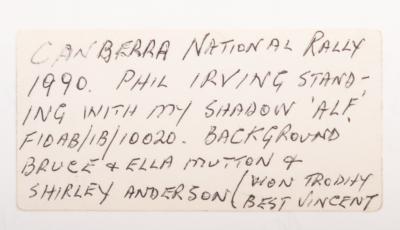 CANBERRA NATIONAL RALLY
1990. PHIL IRVING STAND-
ING WITH MY SHADOW 'ALF'
F10AB/1B/10020. BACKGROUND
BRUCE & ELLA MUTTON &
SHIRLEY ANDERSON (WON TROPHY
BEST VINCENT